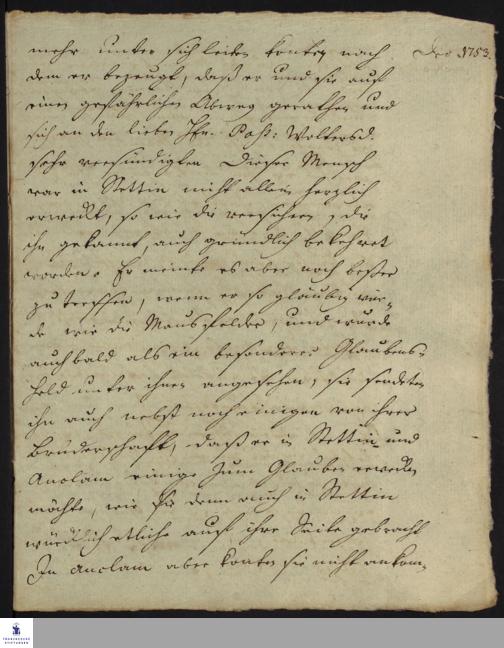 mehr unter sich leiden konten nach Dec 1753.
dem er bezeugt, daß er und sie auf
einen gefährlichen Abweg gerathen und
sich an den lieben Hrn. Past: Woltersd.
sehr versündigten Dieser Mensch
war in Stettin nicht allein herzlich
erweckt, so wie die versichern, die
ihn gekannt, auch gründlich bekehret
worden. Er meinte es aber noch besser
zu treffen, wenn er so gläubig wür-
de wie die Mansfelder, und wurde
auch bald als ein besonderer Glaubens-
Held unter ihnen angesehen, sie sendeten
ihn auch nebst noch einigen von ihrer
Brüderschafft, daß er in Stettin und
Anclam einige zum Glauben erwecken
möchte, wie sie denn auch in Stettin
würcklich etliche auf ihre Seite gebracht
In Anclam aber konten sie nicht ankom-
FRANCKESCHE
STIFTUNGEN